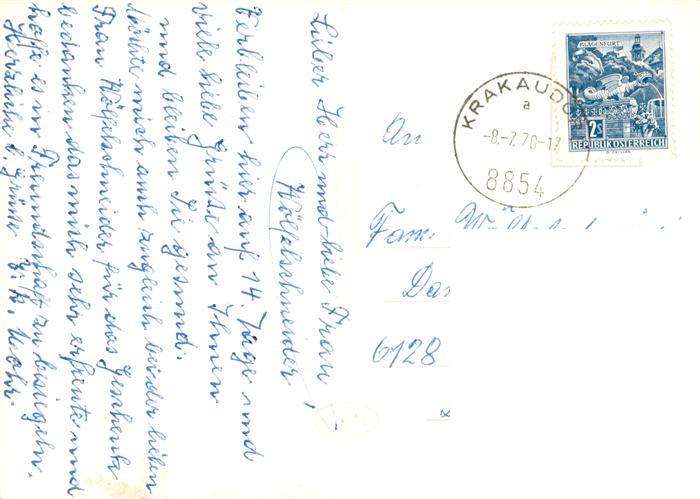 Lieber Herr und liebe Frau
Hölzlschneider!
Verbleiben hier auf 14. Tage und
viele liebe Grüße an Ihnen
und bleiben Sie gesund.
Möchte mich auch zugleich bei der lieben
Frau Hölzlschneider für das Geschenk
bedanken das mich sehr erfreute und
hoffe es in Freundschaft zu besiegeln.
Herzliche L. Grüße
An
Fam.
6128
KLAGENFURT
2S
REPUBLIK ÖSTERREICH
KRAKAUDO
a
-8.-7.70-17
8854